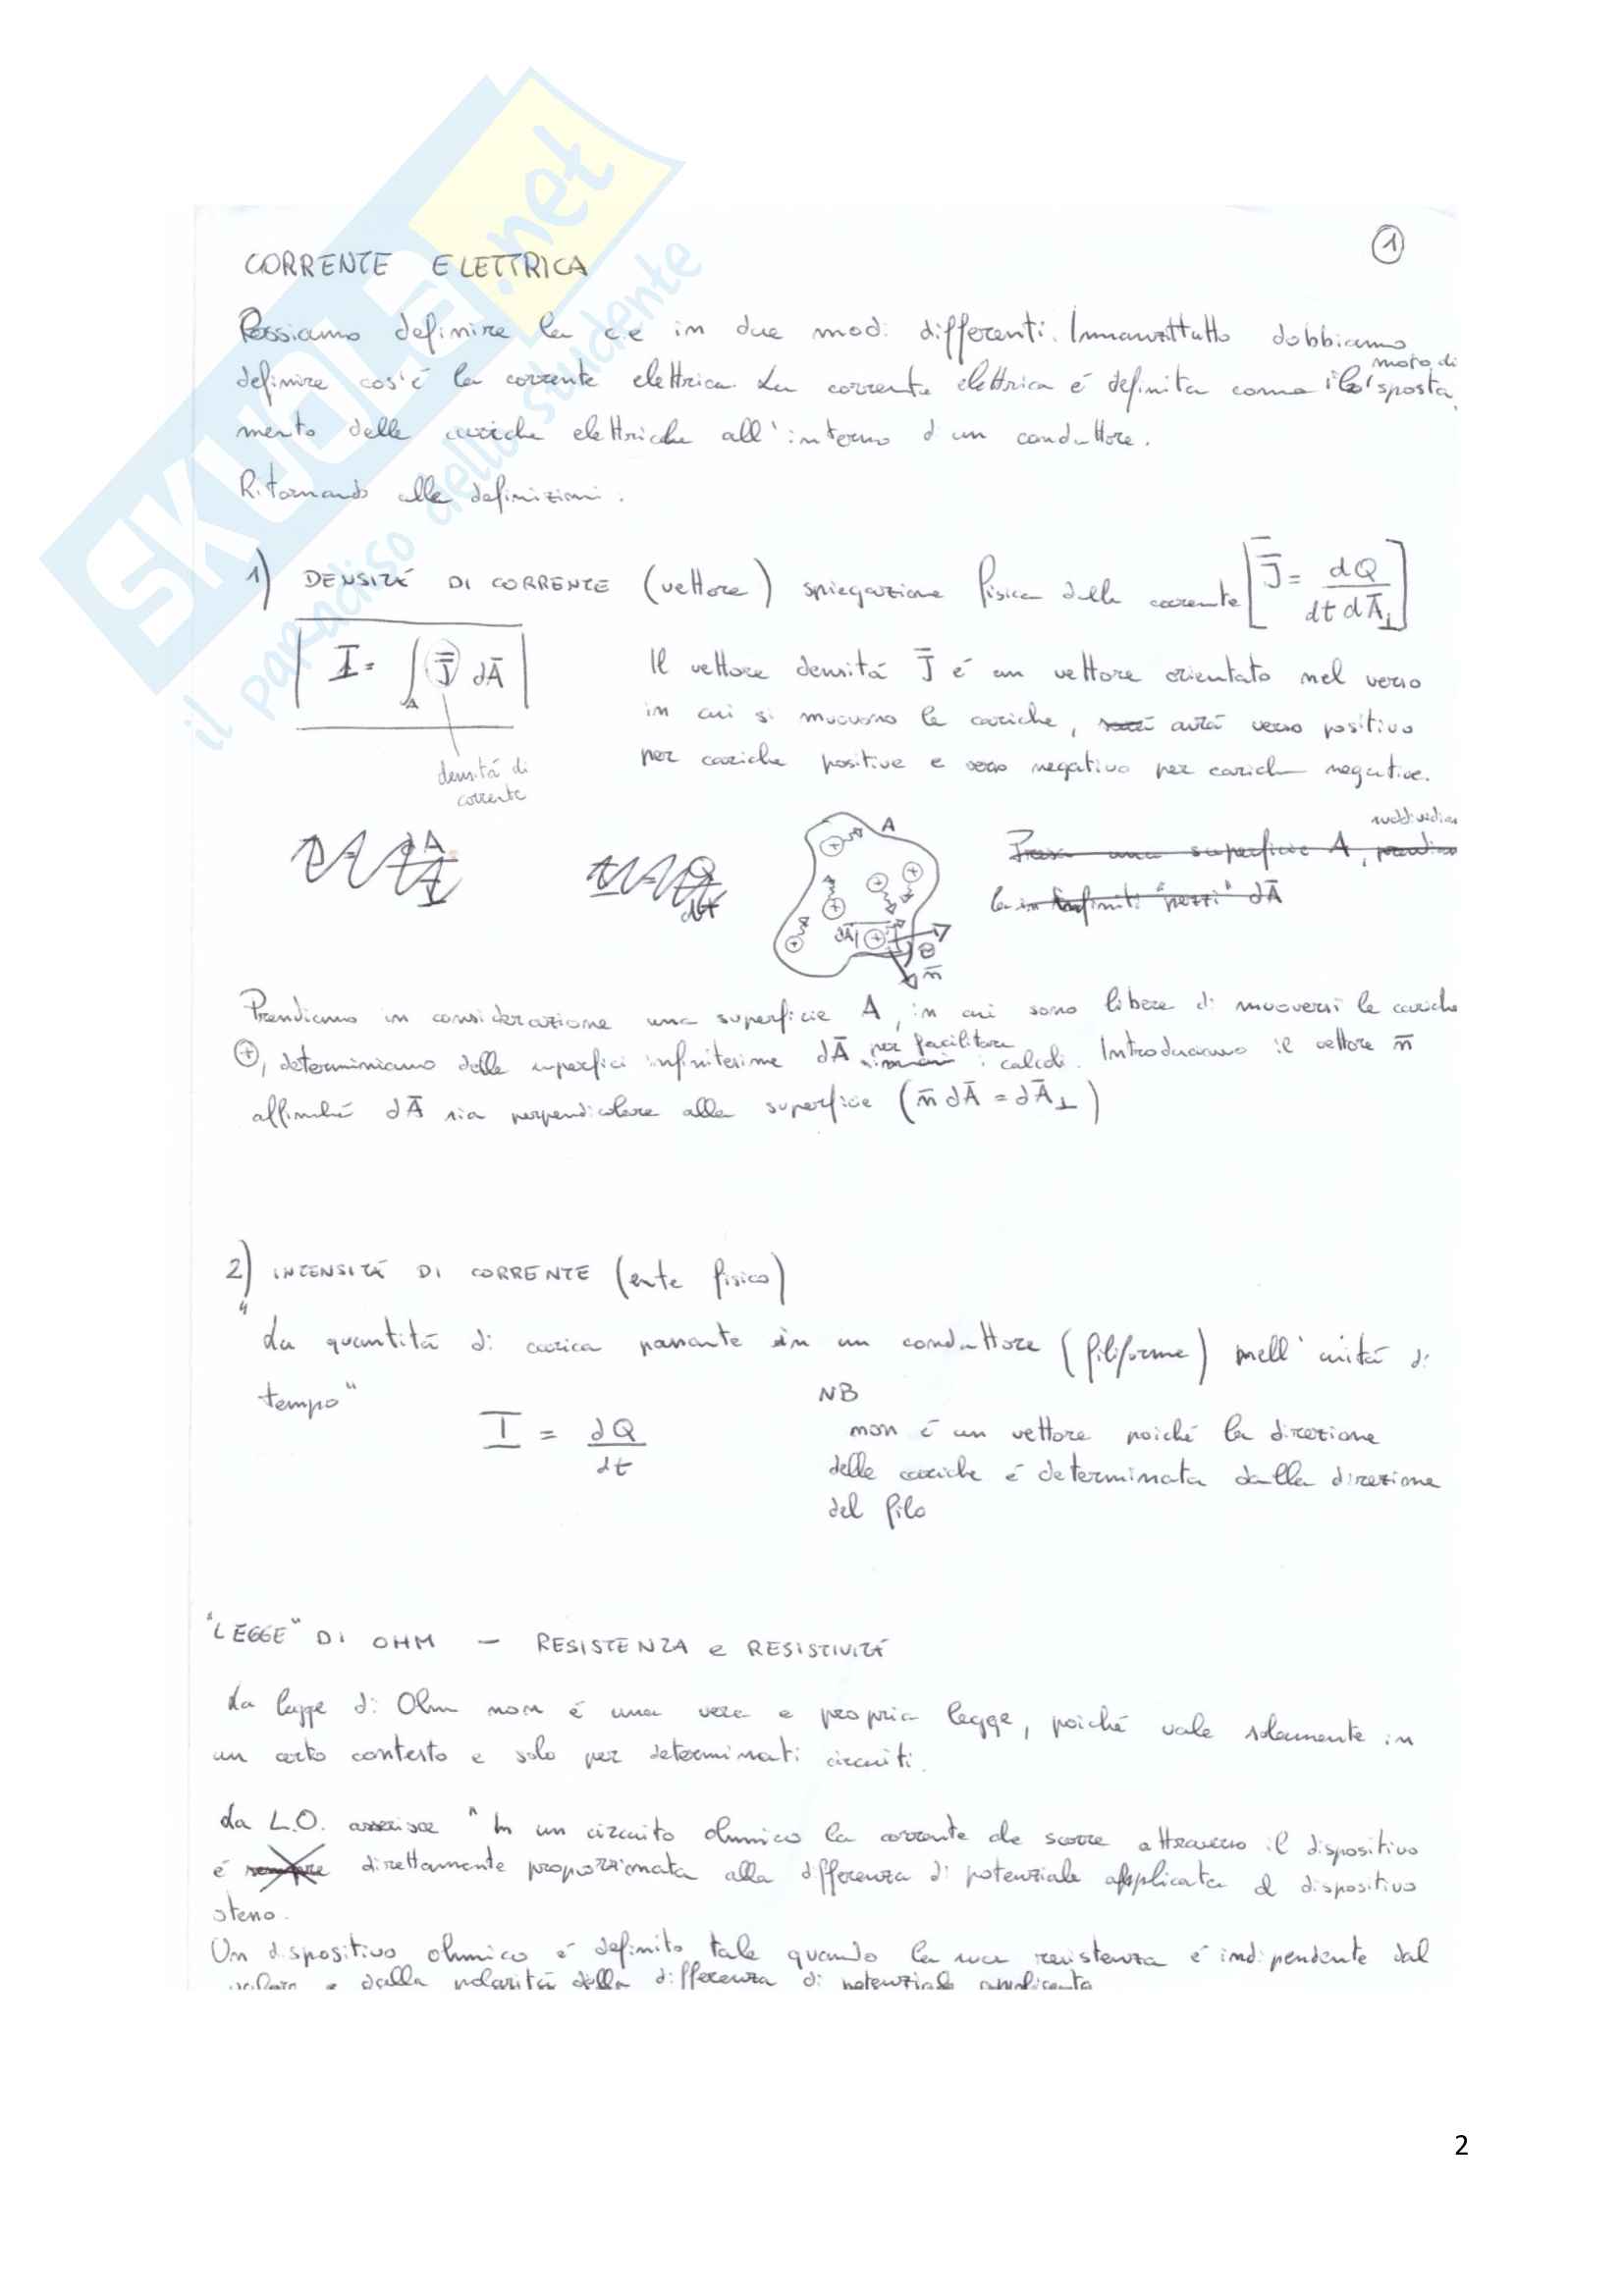 SKUOLA.net
il paradiso dello studente
1
CORRENTE ELETTRICA
Possiamo definire la c.e in due modi differenti. Innanzittutto dobbiamo
definire cos'é la corrente elettrica. La corrente elettrica é definita come il moto di sposta
mento delle cariche elettriche all'interno d'un conduttore.
Ritornando alle definizioni.
1) DENSITÁ DI CORRENTE (vettore) spiegazione fisica della corrente [J̄ = dQ / dt dĀ⊥]
I = ∫A J̄ dĀ
densitá di
corrente
Il vettore densitá J̄ é un vettore orientato nel verso
in cui si muovono le cariche, avrá verso positivo
per cariche positive e verso negativo per cariche negative.
A
dĀ
J̄
θ
n̄
Presa una superficie A,
suddividia
infiniti "pezzi" dĀ
Prendiamo in considerazione una superficie A, in cui sono libere di muoversi le cariche
⊕, determiniamo delle superfici infinitesime dĀ per facilitare i calcoli. Introduciamo il vettore n̄
affinché dĀ sia perpendicolare alla superficie (n̄ dĀ = dĀ⊥)
2) INTENSITÁ DI CORRENTE (ente fisico)
"La quantitá di carica passante in un conduttore (filiforme) nell'unitá di
tempo"
I = dQ / dt
NB
non é un vettore poiché la direzione
delle cariche é determinata dalla direzione
del filo
"LEGGE" DI OHM - RESISTENZA e RESISTIVITÁ
La legge di Ohm non é una vera e propria legge, poiché vale solamente in
un certo contesto e solo per determinati circuiti.
La L.O. asserisce "In un circuito ohmico la corrente che scorre attraverso il dispositivo
é sempre direttamente proporzionata alla differenza di potenziale applicata al dispositivo
stesso.
Un dispositivo ohmico é definito tale quando la sua resistenza é indipendente dal
valore e dalla polaritá della differenza di potenziale applicata
2